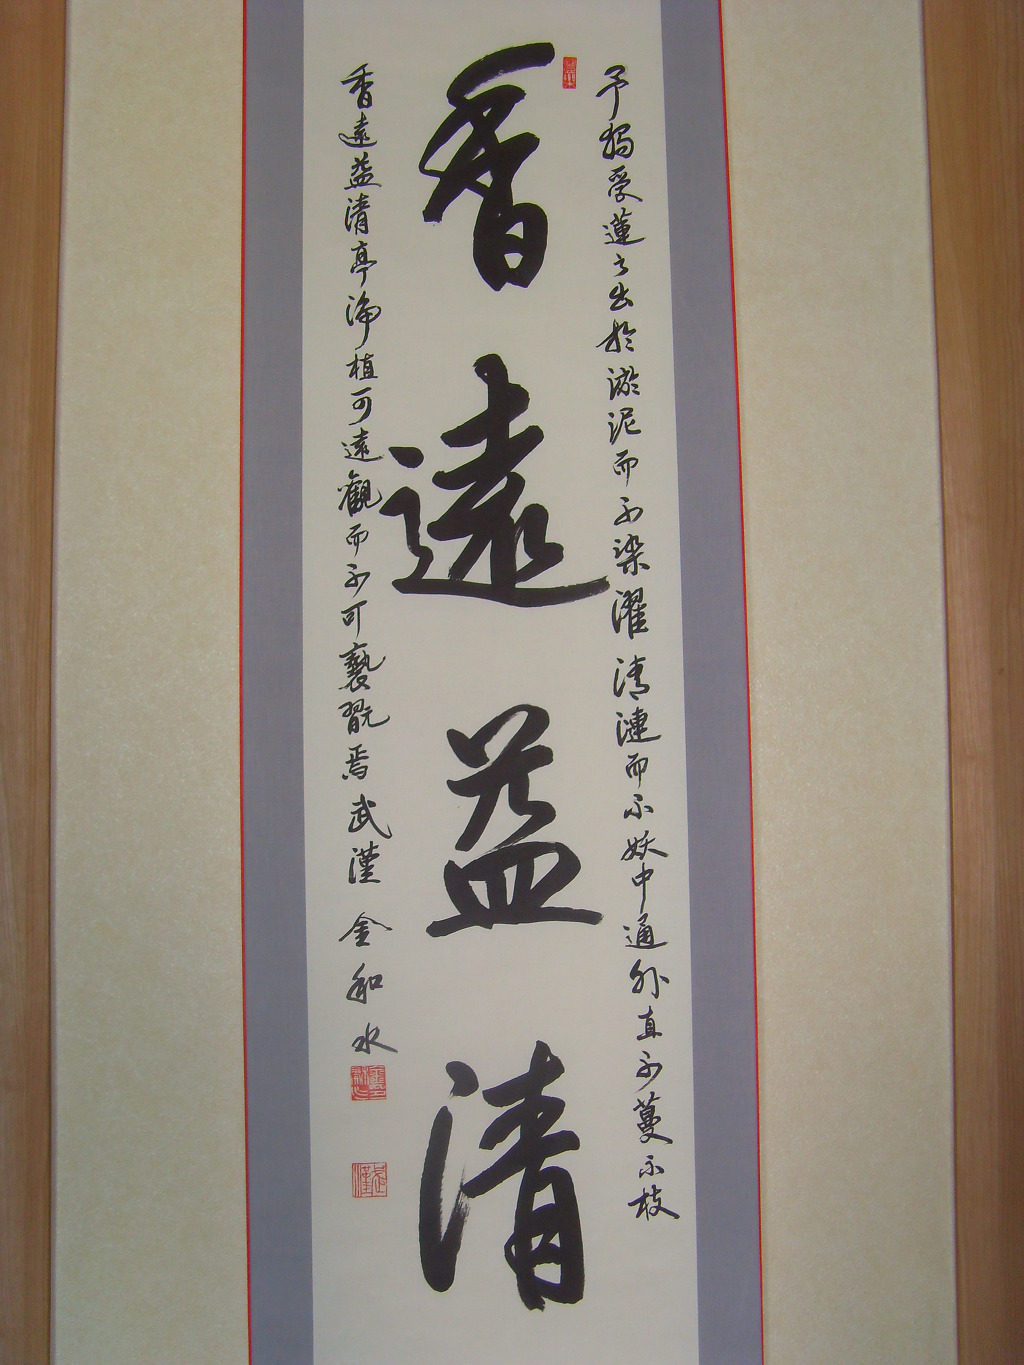 香遠益清
予獨愛蓮之出於淤泥而不染濯清漣而不妖中通外直不蔓不枝
香遠益清亭淨植可遠觀而不可褻翫焉武漢 金和水